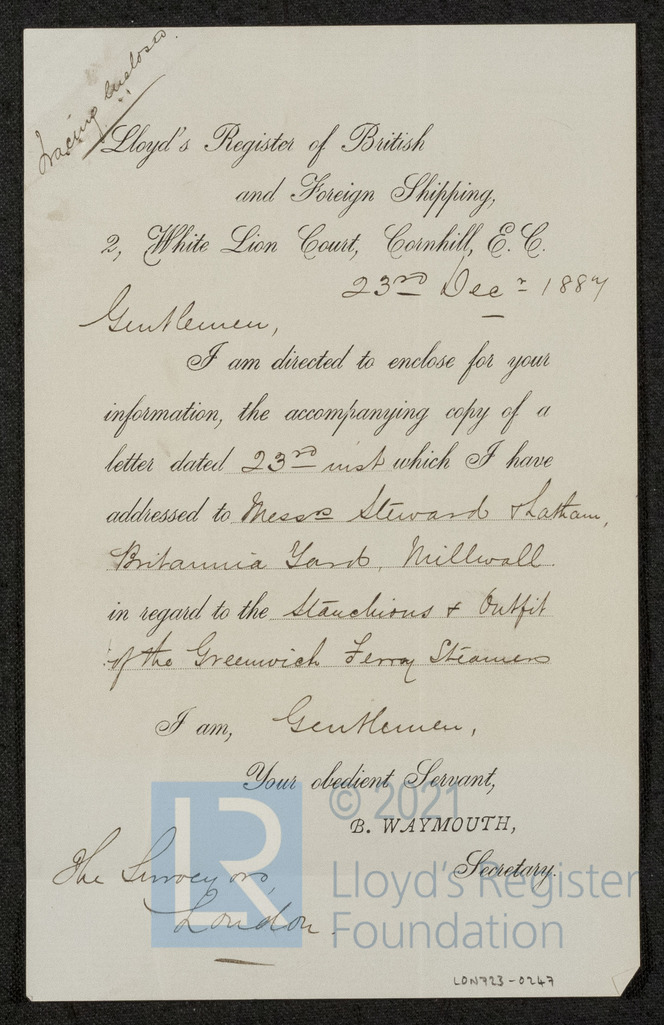 Tracing enclosed.
Lloyd's Register of British
and Foreign Shipping,
2, White Lion Court, Cornhill, E.C.
23rd Decr 1887
Gentlemen,
I am directed to enclose for your
information, the accompanying copy of a
letter dated 23rd inst which I have
addressed to Messrs Steward & Latham,
Britannia Yard, Millwall.
in regard to the Stanchions & Outfit
of the Greenwich Ferry Steamers
I am, Gentlemen,
Your obedient Servant,
B. WAYMOUTH,
Secretary.
The Surveyors,
London.
LR
© 2021
Lloyd's Register
Foundation
LON723-0247